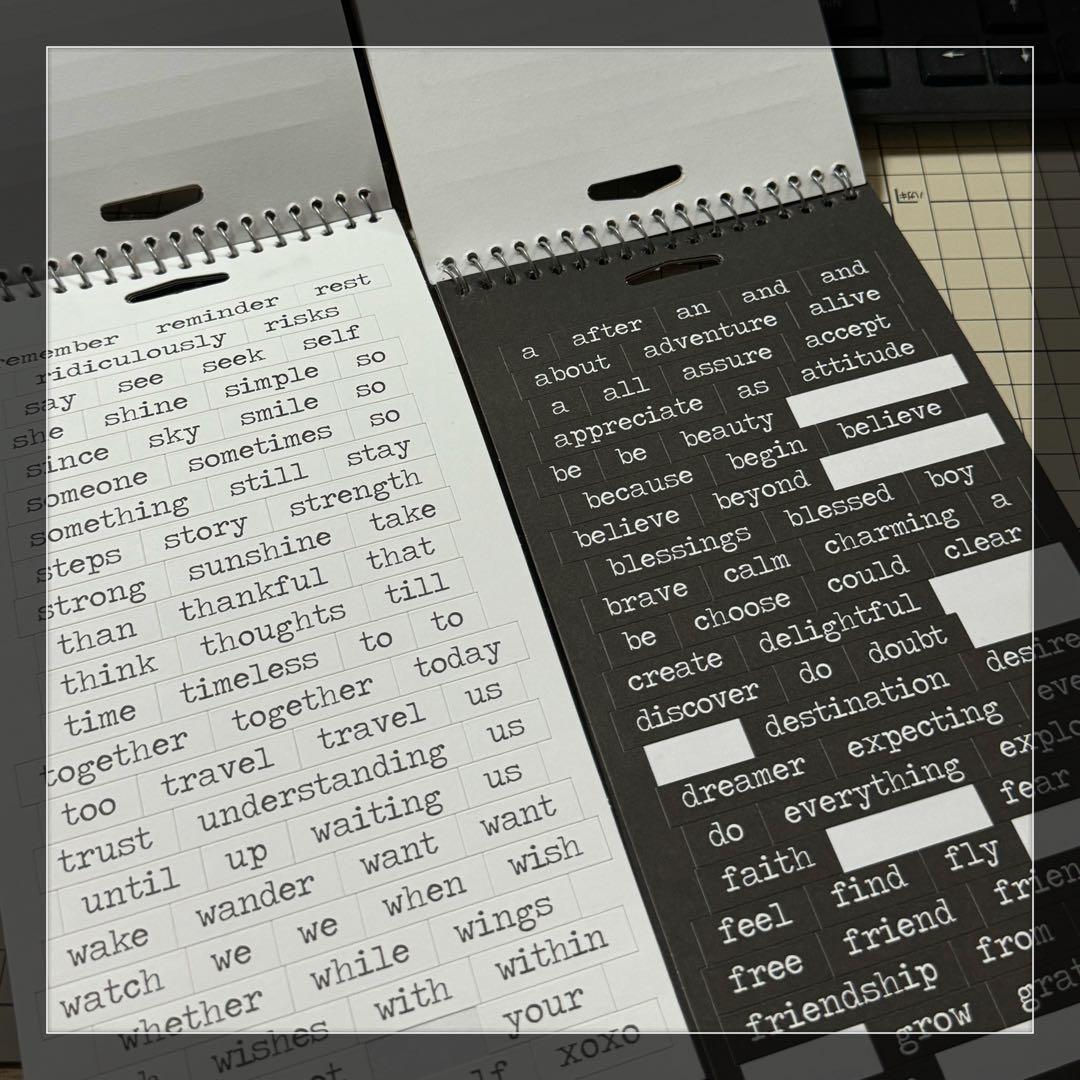 remember reminder rest
ridiculously risks
say see seek self
she shine simple so
since sky smile so
someone sometimes so
something still stay
steps story strength
strong sunshine take
than thankful that
think thoughts till
time timeless to to
together together today
too travel travel us
trust understanding us
until up waiting us
wake wander want want
watch we we when wish
whether while wings
wishes with within
your
xoxo
a after an and and
about adventure alive
a all assure accept
appreciate as attitude
be be beauty
because begin believe
believe beyond
blessings blessed boy
brave calm charming a
be choose could clear
create delightful
discover do doubt
destination desire
dreamer expecting
do everything
faith fear
feel find fly
free friend
friendship from
grow